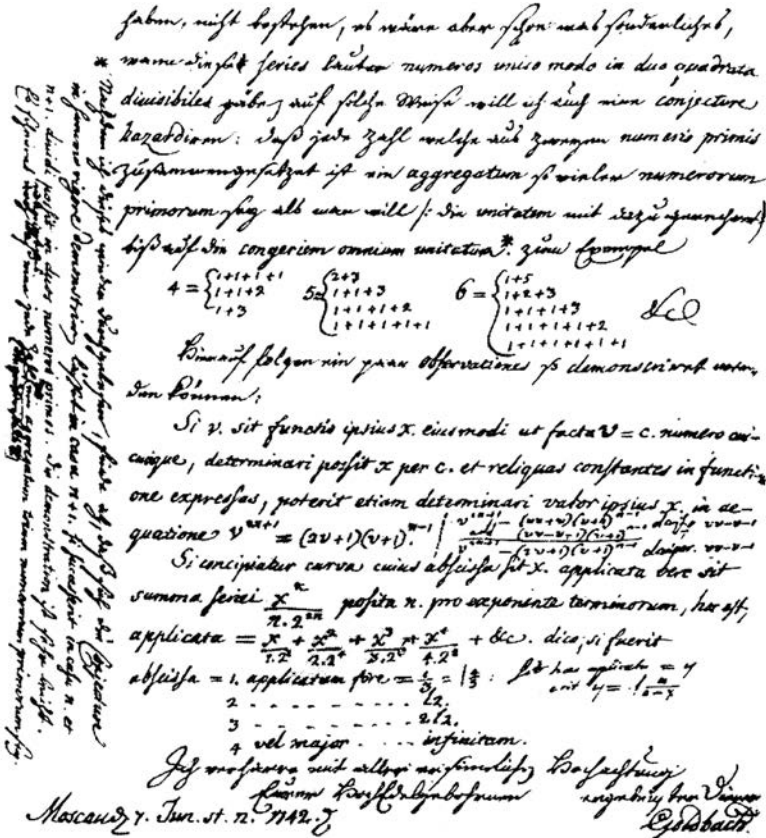 haben, nicht bestehen, es wäre aber schon was sonderliches,
wann diese series lauter numeros unico modo in duo quadrata
divisibiles gäbe, auf solche Weise will ich auch eine conjecture
hazardiren: daß jede Zahl welche aus zweyen numeris primis
zusammengesetzet ist ein aggregatum so vieler numerorum
primorum sey als man will /: die unitatem mit dazu gerechnet
biß auf die congeriem omnium unitatum*. zum Exempel
4 = { 1+1+1+1
1+1+2
1+3
5 = { 2+3
1+1+3
1+1+1+2
1+1+1+1+1
6 = { 1+5
1+2+3
1+1+1+3
1+1+1+1+2
1+1+1+1+1+1
&c
Hierauf folgen ein paar observationes so demonstriret wer-
den können:
Si v. sit functio ipsius x. eiusmodi ut facta v = c. numero cui-
cunque, determinari possit x per c. et reliquas constantes in functi-
one expressas, poterit etiam determinari valor ipsius x. in ae-
quatione v^{2n+1} = (2v+1)(v+1)^{n-1}
Si concipiatur curva cuius abscissa sit x. applicata vero sit
summa seriei x^n/(n.2^{2n}) posita n. pro exponente terminorum, hoc est,
applicata = x/(1.2^2) + x^2/(2.2^4) + x^3/(3.2^6) + x^4/(4.2^8) + &c. dico, si fuerit
abscissa = 1. applicatam fore = l 4/3 :
2 - - - - - - - - - l2.
3 - - - - - - - - - 2l2.
4 vel major - - - - infinitam.
Ich verharre mit aller ersinnlichen Hochachtung
Eurer HochEdelgebohrnen ergebenster Diener
Moscau d. 7. Jun. st. n. 1742. Goldbach.
* Nachdem ich dieses wieder durchgelesen, finde ich, daß sich die Conjecture
in summo rigore demonstriren läßet in casu n+1. si successerit in casu n. et
n+1. dividi possit in duos numeros primos. Die demonstration ist sehr leicht.
Es scheinet wenigstens, daß eine jede Zahl aggregatum trium numerorum primorum sey.